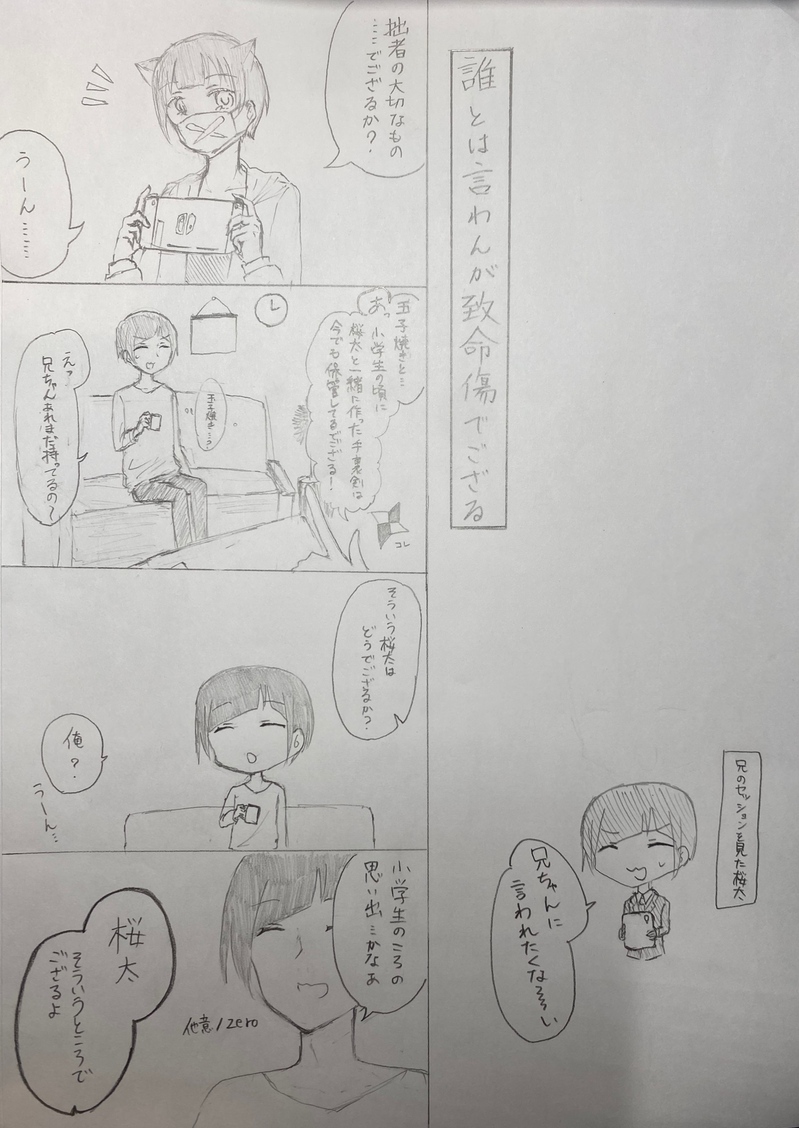 誰とは言わんが致命傷でござる
拙者の大切なもの
……でござるか？
うーん……
玉子焼きと…
あっ
小学生の頃に
桜太と一緒に作った手裏剣は
今でも保管してるでござる！
コレ
玉子焼き…？
えっ
兄ちゃんあれまだ持ってるの〜
そういう桜太は
どうでござるか？
俺？
うーん…
小学生のころの
思い出…かなぁ
他意/zero
桜太
そういうところで
ござるよ
兄のセッションを見た桜太
兄ちゃんに
言われたくなぁい